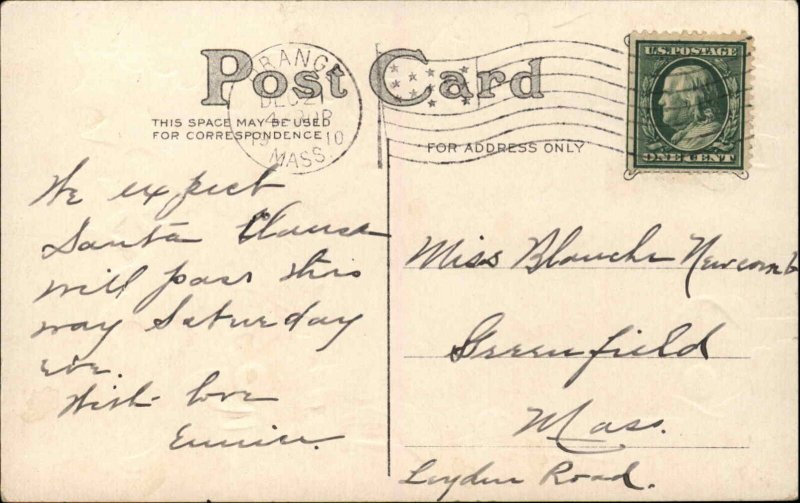 Post Card
ORANGE
DEC 21
1910
MASS
THIS SPACE MAY BE USED
FOR CORRESPONDENCE
FOR ADDRESS ONLY
U.S. POSTAGE
ONE CENT
We expect
Santa Clause
will pass this
way Saturday
eve.
With love
Eunice.
Miss Blanche Newcomb
Greenfield
Mass.
Leyden Road.